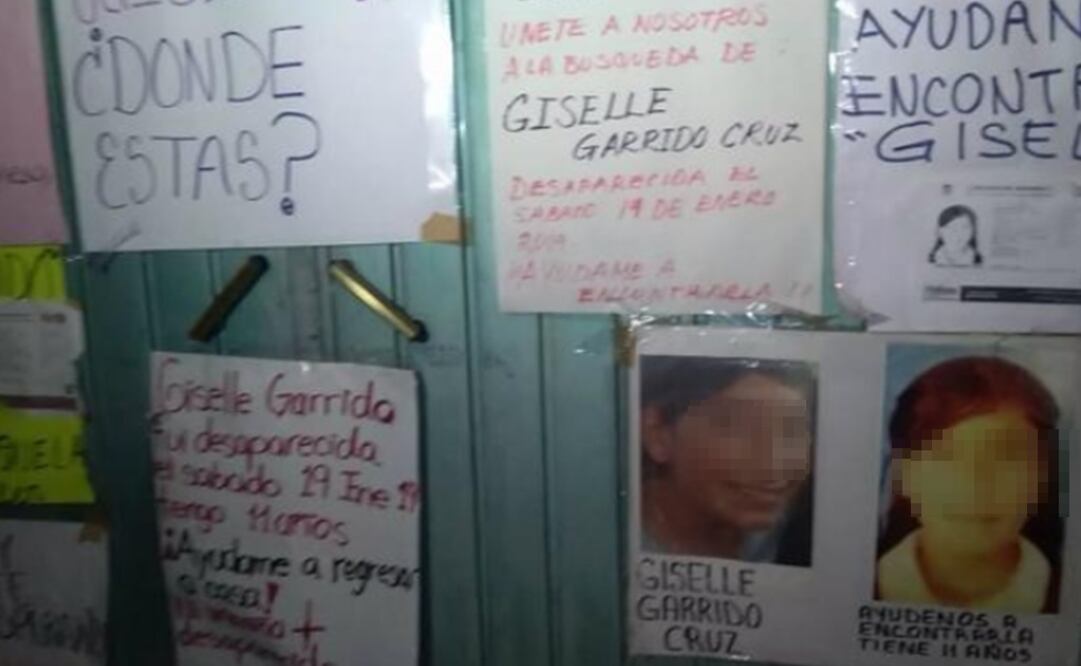 ¿DONDE
ESTAS?
UNETE A NOSOTROS
A LA BUSQUEDA DE
GISELLE
GARRIDO CRUZ
DESAPARECIDA EL
SABADO 19 DE ENERO
2019
AYUDAME A
ENCONTRARLA !!
AYUDAN
ENCONTR
"GISEL
Giselle Garrido
fui desaparecida
el sabado 19 Ene 19
tengo 11 años
¡Ayudame a regresar
a casa!
+
GISELLE
GARRIDO
CRUZ
AYUDENOS A
ENCONTRARLA
TIENE 11 AÑOS